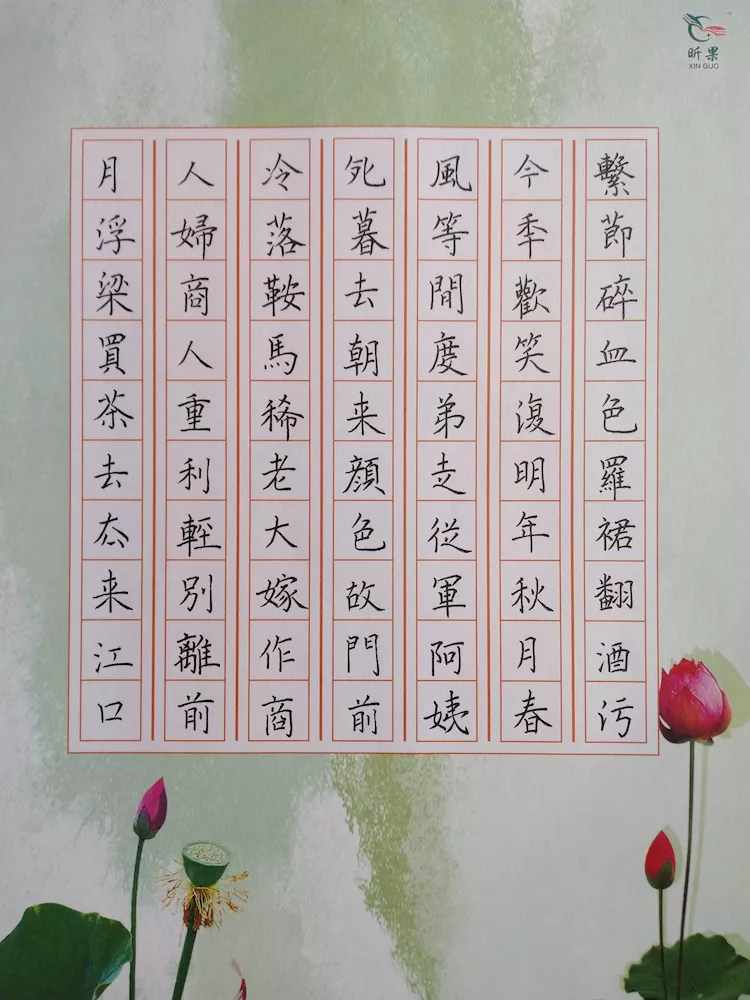 昕果
XIN GUO
繫節碎血色羅裙翻酒污
今秊歡笑復明年秋月春
風等間度弟走從軍阿姨
死暮去朝来顔色故門前
冷落鞍馬稀老大嫁作商
人婦商人重利輕別離前
月浮梁買茶去厺来江口